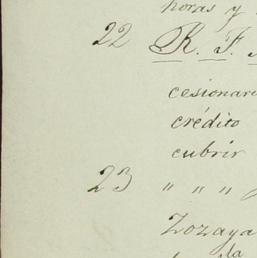 horas y
22 R. F.
cesionari
crédito
cubrir
23 " " "
Zozaya
la